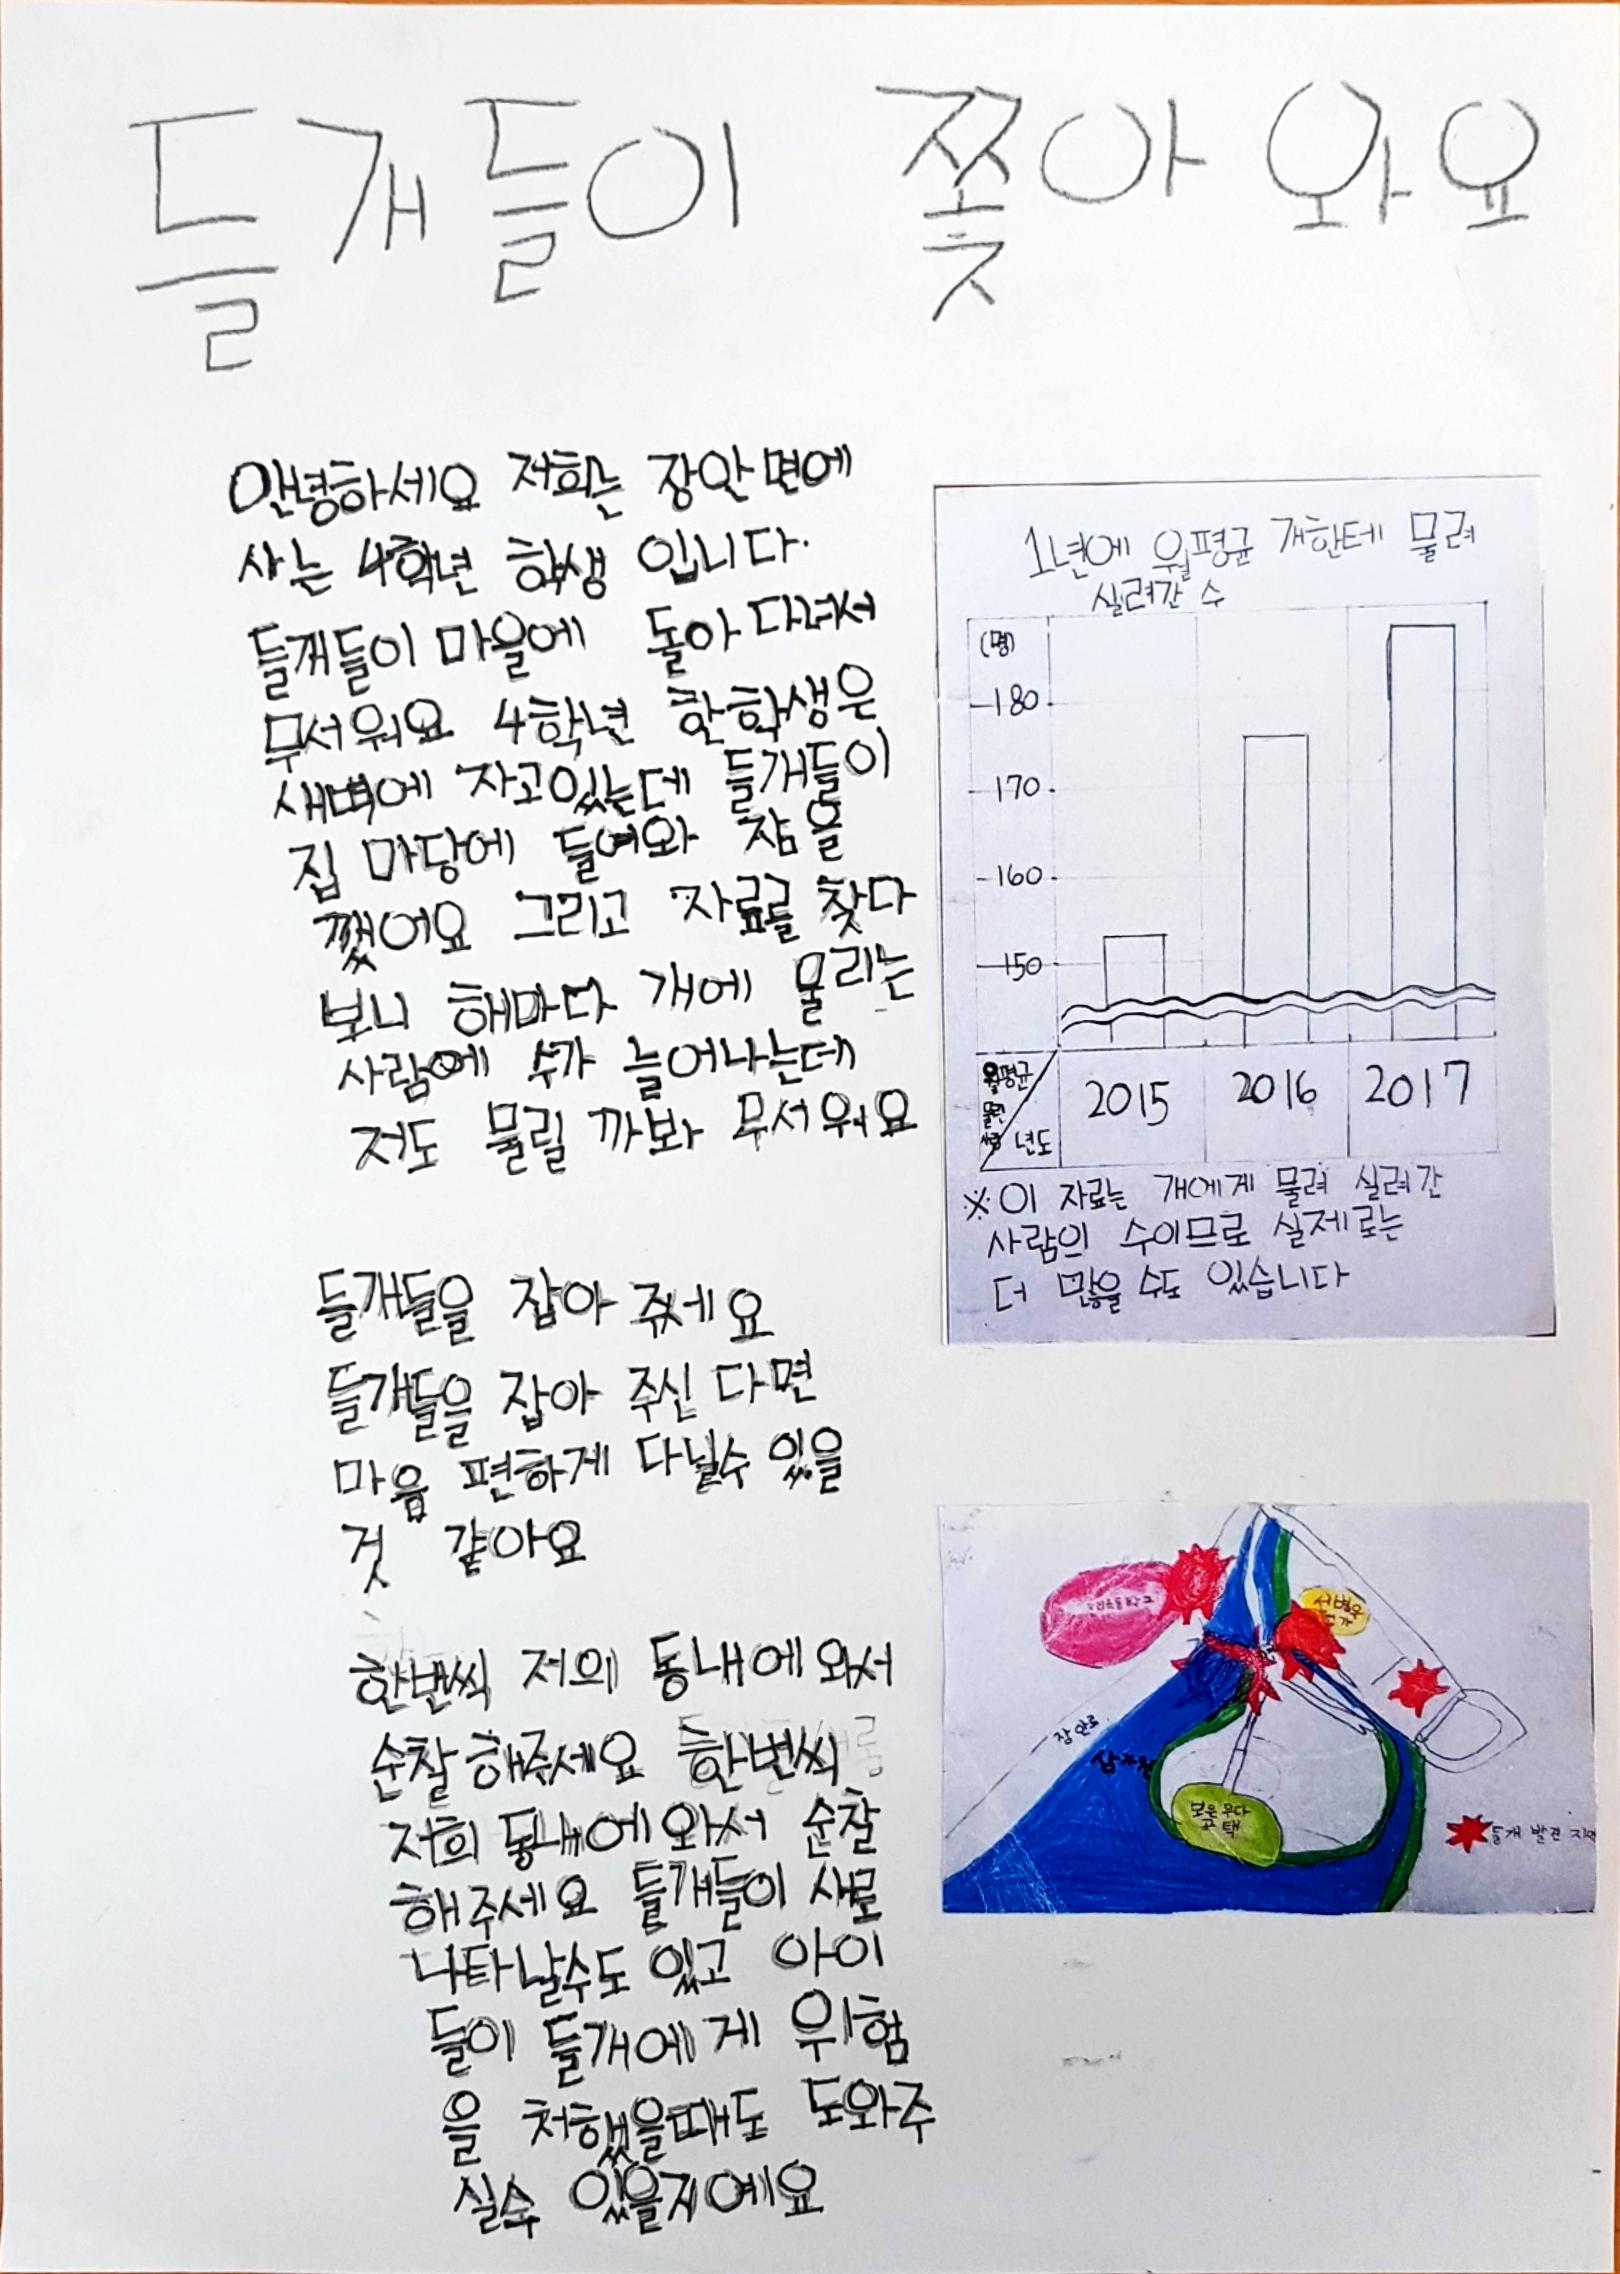 들개들이 쫓아와요
안녕하세요 저희는 장안면에
사는 4학년 학생 입니다.
들개들이 마을에 돌아 다녀서
무서워요 4학년 한학생은
새벽에 자고있는데 들개들이
집 마당에 들여와 잠을
깼어요 그리고 자료를 찾다
보니 해마다 개에 물리는
사람에 수가 늘어나는데
저도 물릴 까봐 무서워요
들개들을 잡아 주세요
들개들을 잡아 주신 다면
마음 편하게 다닐수 있을
것 같아요
한번씩 저의 동내에 와서
순찰 해주세요 한번씩
저희 동내에 와서 순찰
해주세요 들개들이 새로
나타 날수도 있고 아이
들이 들개에게 위험
을 처했을때도 도와주
실수 있을지예요
1년에 월평균 개한테 물려
실려간 수
(명)
180
170
160
150
월평균
물린
사람 년도
2015 2016 2017
※이 자료는 개에게 물려 실려간
사람의 수이므로 실제로는
더 많을 수도 있습니다
서병욱
장안로
삼가천
보은 우당
고택
들개 발견 지역